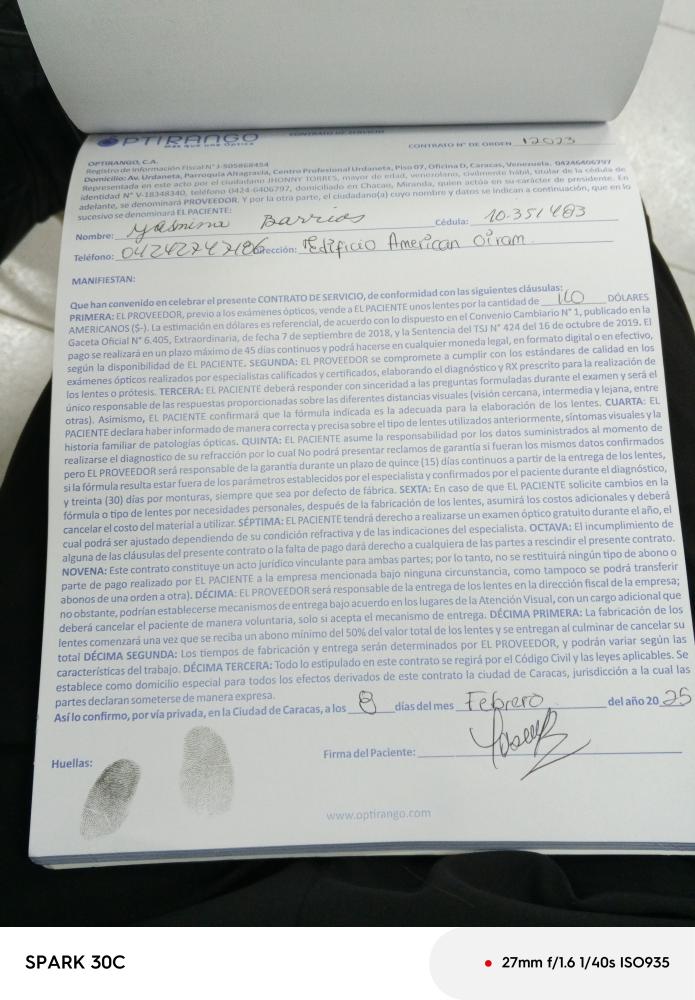 OPTIRANGO
MÁS QUE UNA ÓPTICA
CONTRATO DE SERVICIO
CONTRATO N° DE ORDEN 12023
OPTIRANGO, C.A.
Registro de Información Fiscal N° J-505868454
Domicilio: Av. Urdaneta, Parroquia Altagracia, Centro Profesional Urdaneta, Piso 07, Oficina D, Caracas, Venezuela. 04246406797
Representada en este acto por el ciudadano JHONNY TORRES, mayor de edad, venezolano, civilmente hábil, titular de la cédula de
identidad N° V-18348340, teléfono 0424-6406797, domiciliado en Chacao, Miranda, quien actúa en su carácter de presidente. En
adelante, se denominará PROVEEDOR. Y por la otra parte, el ciudadano(a) cuyo nombre y datos se indican a continuación, que en lo
sucesivo se denominará EL PACIENTE:
Nombre: Yasmina Barrios Cédula: 10.351483
Teléfono: 04242747186 Dirección: Edificio American Oiram
MANIFIESTAN:
Que han convenido en celebrar el presente CONTRATO DE SERVICIO, de conformidad con las siguientes cláusulas:
PRIMERA: EL PROVEEDOR, previo a los exámenes ópticos, vende a EL PACIENTE unos lentes por la cantidad de 110 DÓLARES
AMERICANOS ($-). La estimación en dólares es referencial, de acuerdo con lo dispuesto en el Convenio Cambiario N° 1, publicado en la
Gaceta Oficial N° 6.405, Extraordinaria, de fecha 7 de septiembre de 2018, y la Sentencia del TSJ N° 424 del 16 de octubre de 2019. El
pago se realizará en un plazo máximo de 45 días continuos y podrá hacerse en cualquier moneda legal, en formato digital o en efectivo,
según la disponibilidad de EL PACIENTE. SEGUNDA: EL PROVEEDOR se compromete a cumplir con los estándares de calidad en los
exámenes ópticos realizados por especialistas calificados y certificados, elaborando el diagnóstico y RX prescrito para la realización de
los lentes o prótesis. TERCERA: EL PACIENTE deberá responder con sinceridad a las preguntas formuladas durante el examen y será el
único responsable de las respuestas proporcionadas sobre las diferentes distancias visuales (visión cercana, intermedia y lejana, entre
otras). Asimismo, EL PACIENTE confirmará que la fórmula indicada es la adecuada para la elaboración de los lentes. CUARTA: EL
PACIENTE declara haber informado de manera correcta y precisa sobre el tipo de lentes utilizados anteriormente, síntomas visuales y la
historia familiar de patologías ópticas. QUINTA: EL PACIENTE asume la responsabilidad por los datos suministrados al momento de
realizarse el diagnostico de su refracción por lo cual No podrá presentar reclamos de garantía si fueran los mismos datos confirmados
pero EL PROVEEDOR será responsable de la garantía durante un plazo de quince (15) días continuos a partir de la entrega de los lentes,
si la fórmula resulta estar fuera de los parámetros establecidos por el especialista y confirmados por el paciente durante el diagnóstico,
y treinta (30) días por monturas, siempre que sea por defecto de fábrica. SEXTA: En caso de que EL PACIENTE solicite cambios en la
fórmula o tipo de lentes por necesidades personales, después de la fabricación de los lentes, asumirá los costos adicionales y deberá
cancelar el costo del material a utilizar. SÉPTIMA: EL PACIENTE tendrá derecho a realizarse un examen óptico gratuito durante el año, el
cual podrá ser ajustado dependiendo de su condición refractiva y de las indicaciones del especialista. OCTAVA: El incumplimiento de
alguna de las cláusulas del presente contrato o la falta de pago dará derecho a cualquiera de las partes a rescindir el presente contrato.
NOVENA: Este contrato constituye un acto jurídico vinculante para ambas partes; por lo tanto, no se restituirá ningún tipo de abono o
parte de pago realizado por EL PACIENTE a la empresa mencionada bajo ninguna circunstancia, como tampoco se podrá transferir
abonos de una orden a otra). DÉCIMA: EL PROVEEDOR será responsable de la entrega de los lentes en la dirección fiscal de la empresa;
no obstante, podrían establecerse mecanismos de entrega bajo acuerdo en los lugares de la Atención Visual, con un cargo adicional que
deberá cancelar el paciente de manera voluntaria, solo si acepta el mecanismo de entrega. DÉCIMA PRIMERA: La fabricación de los
lentes comenzará una vez que se reciba un abono mínimo del 50% del valor total de los lentes y se entregan al culminar de cancelar su
total DÉCIMA SEGUNDA: Los tiempos de fabricación y entrega serán determinados por EL PROVEEDOR, y podrán variar según las
características del trabajo. DÉCIMA TERCERA: Todo lo estipulado en este contrato se regirá por el Código Civil y las leyes aplicables. Se
establece como domicilio especial para todos los efectos derivados de este contrato la ciudad de Caracas, jurisdicción a la cual las
partes declaran someterse de manera expresa.
Así lo confirmo, por vía privada, en la Ciudad de Caracas, a los 8 días del mes Febrero del año 20 25
Huellas:
Firma del Paciente:
www.optirango.com
SPARK 30C
27mm f/1.6 1/40s ISO935